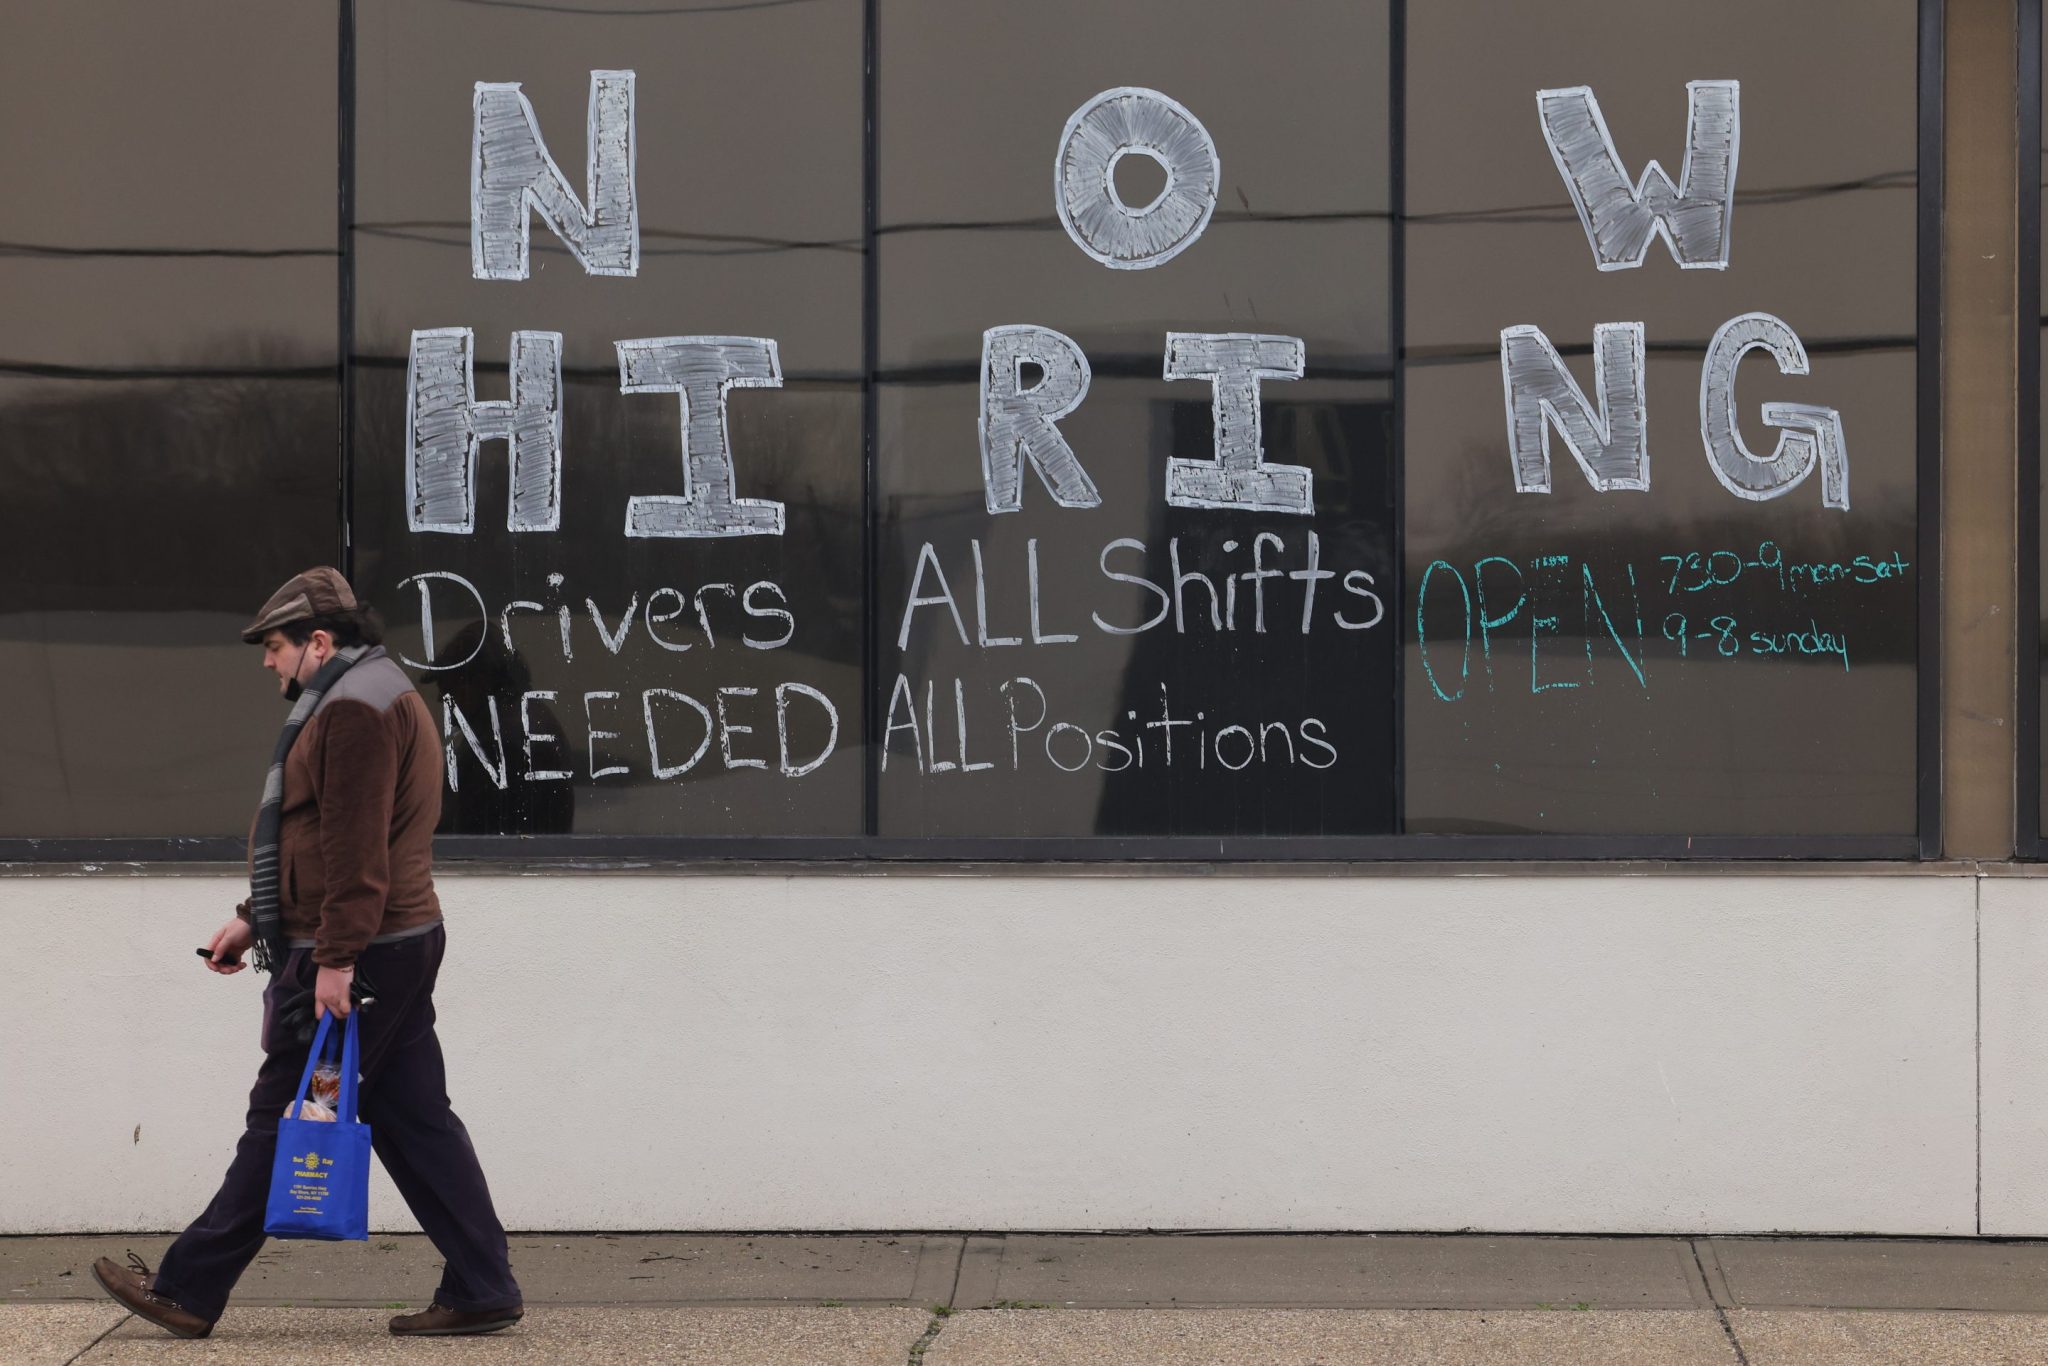 NOW
HIRING
Drivers
NEEDED
ALL Shifts
ALL Positions
OPEN
730-9 mon-Sat
9-8 sunday
Sun Ray
PHARMACY